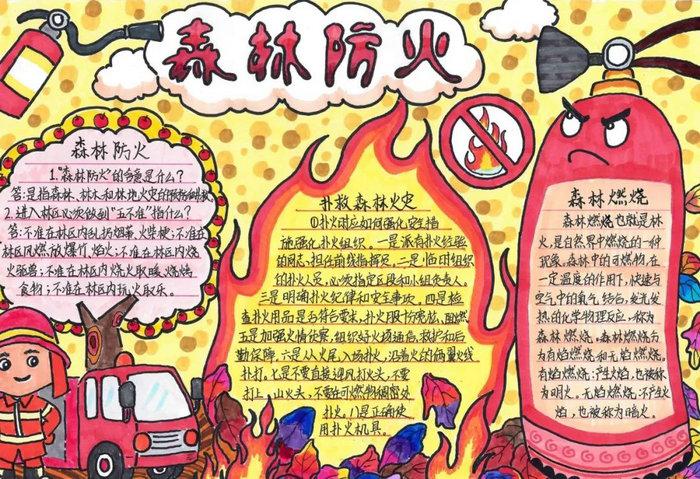 森林防火
森林防火
1."森林防火"的含意是什么?
答:是指森林、林木和林地火灾的预防和扑救
2.进入林区必须做到"五不准"指什么?
答:不准在林区乱扔烟蒂、火柴梗;不准在
林区风燃放爆竹、焰火;不准在林区内烧
火驱兽;不准在林区内烧火取暖、烧烤
食物;不准在林区内玩火取乐。
扑救森林火灾
①扑火时应如何强化安全措
施强化扑火组织。一是派有扑火经验
的同志,担任前线指挥员,二是临时组织
的扑火人员,必须指定区段和小组负责人。
三是明确扑火纪律和安全事项,四是检
查扑火用品是否符合要求,扑火服
五是加强火情侦察,组织好火场通信、救护和后
勤保障,六是从火尾入场扑火,沿着火的两翼火线
扑打。七是不要直接迎风打火头,不要
打上山火头,不要在可燃物稠密处
扑火。八是正确使
用扑火机具。
森林燃烧
森林燃烧也就是林
火,是自然界中燃烧的一种
现象。森林中的可燃物,在
一定温度的作用下,快速与
空气中的氧气结合,发光发
热的化学物理反应,称为
森林燃烧。森林燃烧分
为有焰燃烧和无焰燃烧。
有焰燃烧:产生火焰,也被称
为明火。无焰燃烧:不产生火
焰,也被称为暗火。